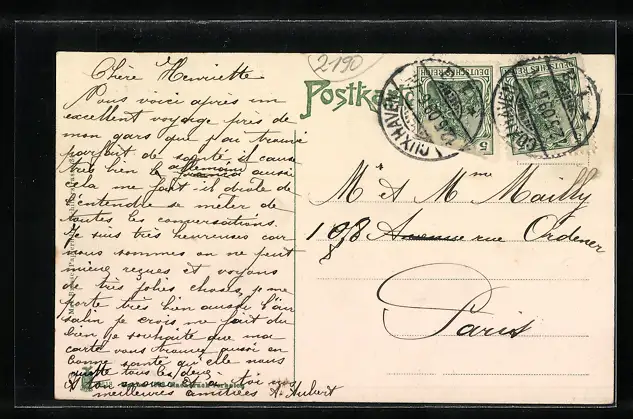 2190
Postka
CUXHAVEN
DEUTSCHES REICH
5
DEUTSCHES REICH
5
Chère Henriette
Nous voici après un
excellent voyage près de
mon gars que j'ai trouvé
parfait de santé, il cause
très bien le allemand aussi
cela me fait il drole de
l'entendre se mêler de
toutes les conversations.
Je suis très heureuse car
nous sommes on ne peut
mieux reçues et voyons
de très jolies choses, je me
porte très bien aussi l'air
salin je crois me fait du
bien je souhaite que ma
carte vous trouve aussi en
bonne santé qu'elle nous
quitte tous les deux.
A ton et a toi nos
meilleures amitiées A. Hubert
Mr & Mme Mailly
198 Avenue rue Ordener
Paris